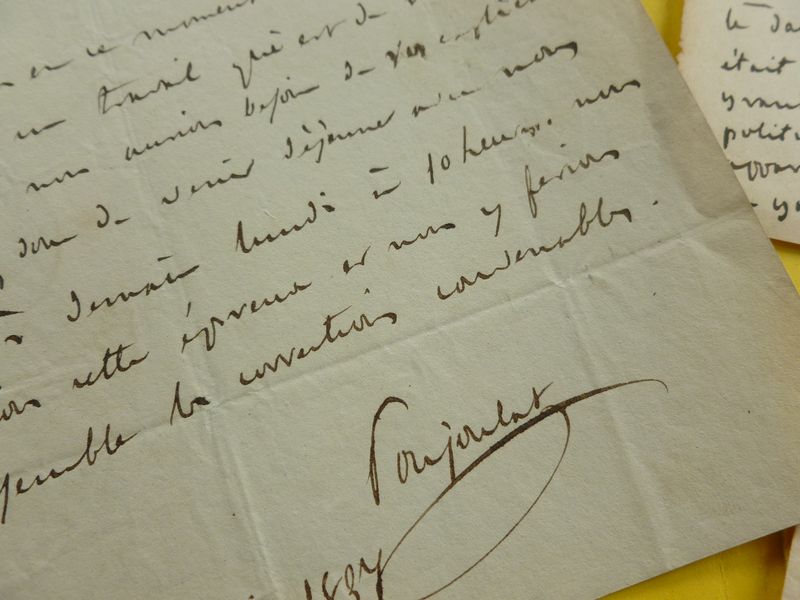 en ce moment
un travail qui est de
nous aurions besoin de vos
donc de venir déjeuner avec nous
demain lundi à 10 heures. nous
cette épreuve et nous y ferions
semble les corrections convenables.
Poujoulat
1837
té da
était
polit